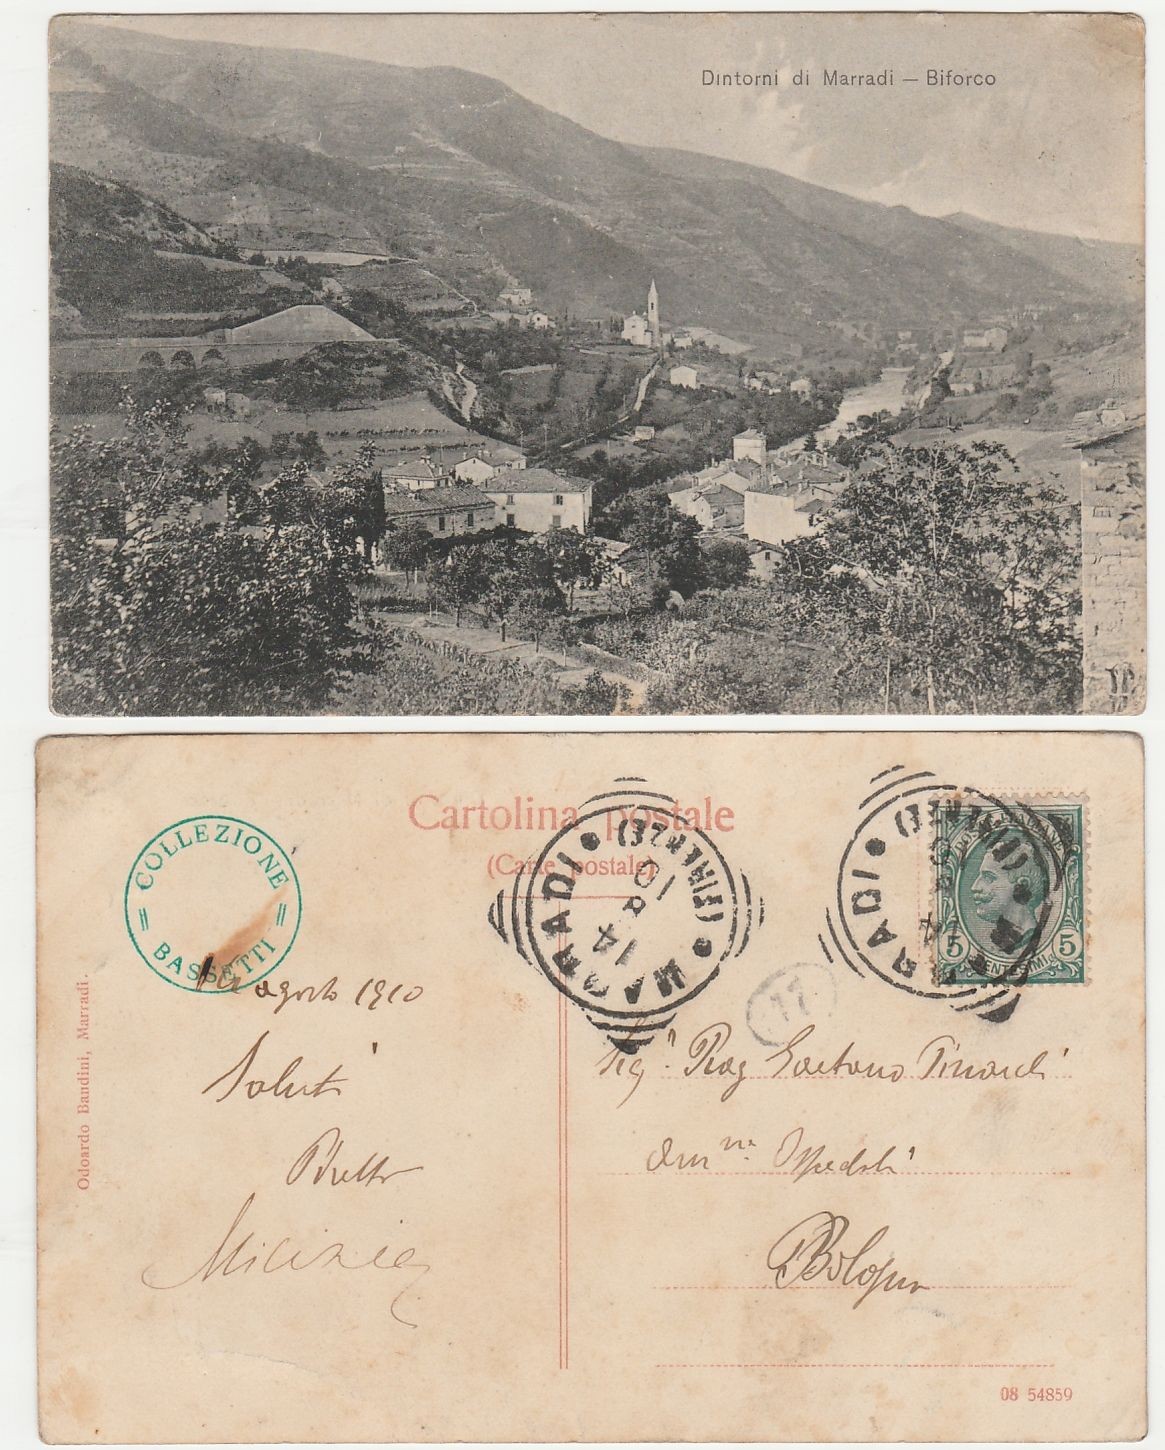 Dintorni di Marradi — Biforco
Cartolina postale
(Carte postale)
COLLEZIONE
= BASSETTI =
MARRADI
(FIRENZE)
14
8
10
MARRADI
(FIRENZE)
POSTE ITALIANE
5 5
CENTESIMI
77
14 agosto 1910
Saluti
Sigr Rag Gaetano Pinardi
Ammne Ospedali
Bologna
Odoardo Bandini, Marradi.
08 54859